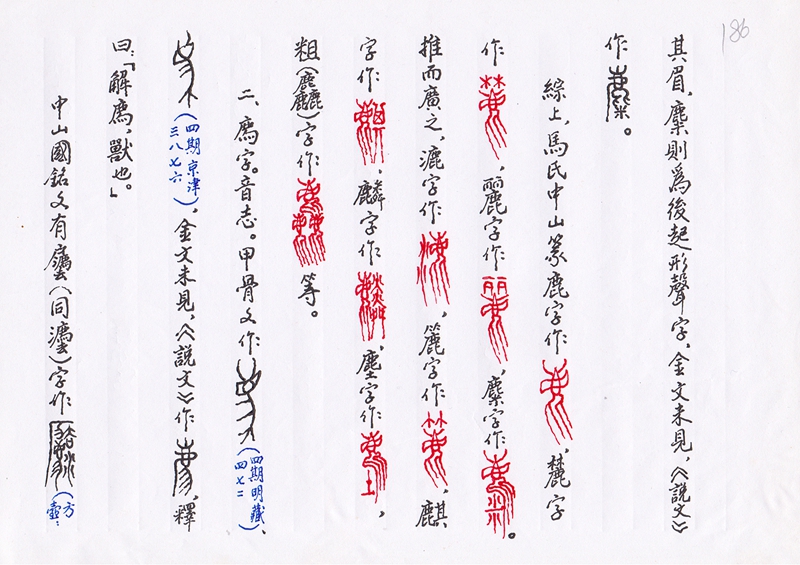 186
其眉，麋則爲後起形聲字。金文未見，《說文》
作。
綜上，馬氏中山篆鹿字作，麓字
作，麗字作，麋字作。
推而廣之，漉字作，簏字作，麒
字作，麟字作，塵字作，
粗（麤）字作等。
二、廌字。音志。甲骨文作（四期明藏四七二）、
（四期京津三八七六），金文未見，《說文》作，釋
曰：「解廌，獸也。」
中山國銘文有（同）字作（方壺：